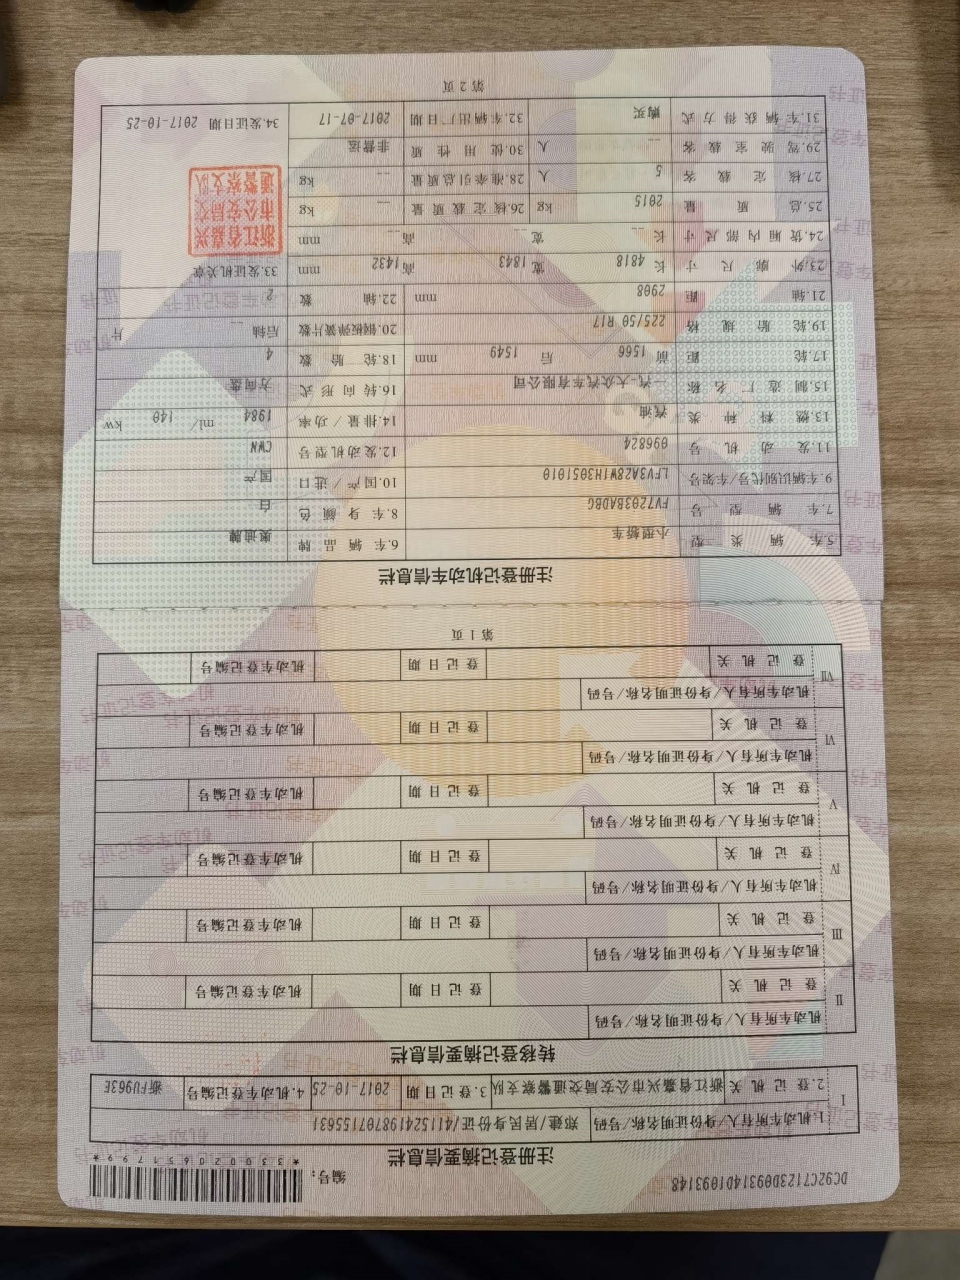 DC92C7123D09314D1093148
编号：
*330020651799*
注册登记摘要信息栏
I 1.机动车所有人/身份证明名称/号码 郑建/居民身份证/411524198707155631
2.登记机关 浙江省嘉兴市公安局交通警察支队 3.登记日期 2017-10-25 4.机动车登记编号 浙FU963E
转移登记摘要信息栏
II 机动车所有人/身份证明名称/号码
登记机关 登记日期 机动车登记编号
III 机动车所有人/身份证明名称/号码
登记机关 登记日期 机动车登记编号
IV 机动车所有人/身份证明名称/号码
登记机关 登记日期 机动车登记编号
V 机动车所有人/身份证明名称/号码
登记机关 登记日期 机动车登记编号
VI 机动车所有人/身份证明名称/号码
登记机关 登记日期 机动车登记编号
VII 机动车所有人/身份证明名称/号码
登记机关 登记日期 机动车登记编号
第1页
注册登记机动车信息栏
5.车辆类型 小型轿车 6.车辆品牌 奥迪牌
7.车辆型号 FV7203BADBG 8.车身颜色 白
9.车辆识别代号/车架号 LFV3A28W1H3051010 10.国产/进口 国产
11.发动机号 096824 12.发动机型号 CWN
13.燃料种类 汽油 14.排量/功率 1984 ml/ 140 kw
15.制造厂名称 一汽-大众汽车有限公司 16.转向形式 方向盘
17.轮距 前 1566 后 1549 mm 18.轮胎数 4
19.轮胎规格 225/50 R17 20.钢板弹簧片数 后轴 -- 片
21.轴距 2908 mm 22.轴数 2
23.外廓尺寸 长 4818 宽 1843 高 1432 mm 33.发证机关章
24.货厢内部尺寸 长 -- 宽 -- 高 -- mm
浙江省嘉兴
市公安局交
通警察支队
25.总质量 2015 kg 26.核定载质量 -- kg
27.核定载客 5 人 28.准牵引总质量 -- kg
29.驾驶室载客 -- 人 30.使用性质 非营运
31.车辆获得方式 购买 32.车辆出厂日期 2017-07-17 34.发证日期 2017-10-25
第2页